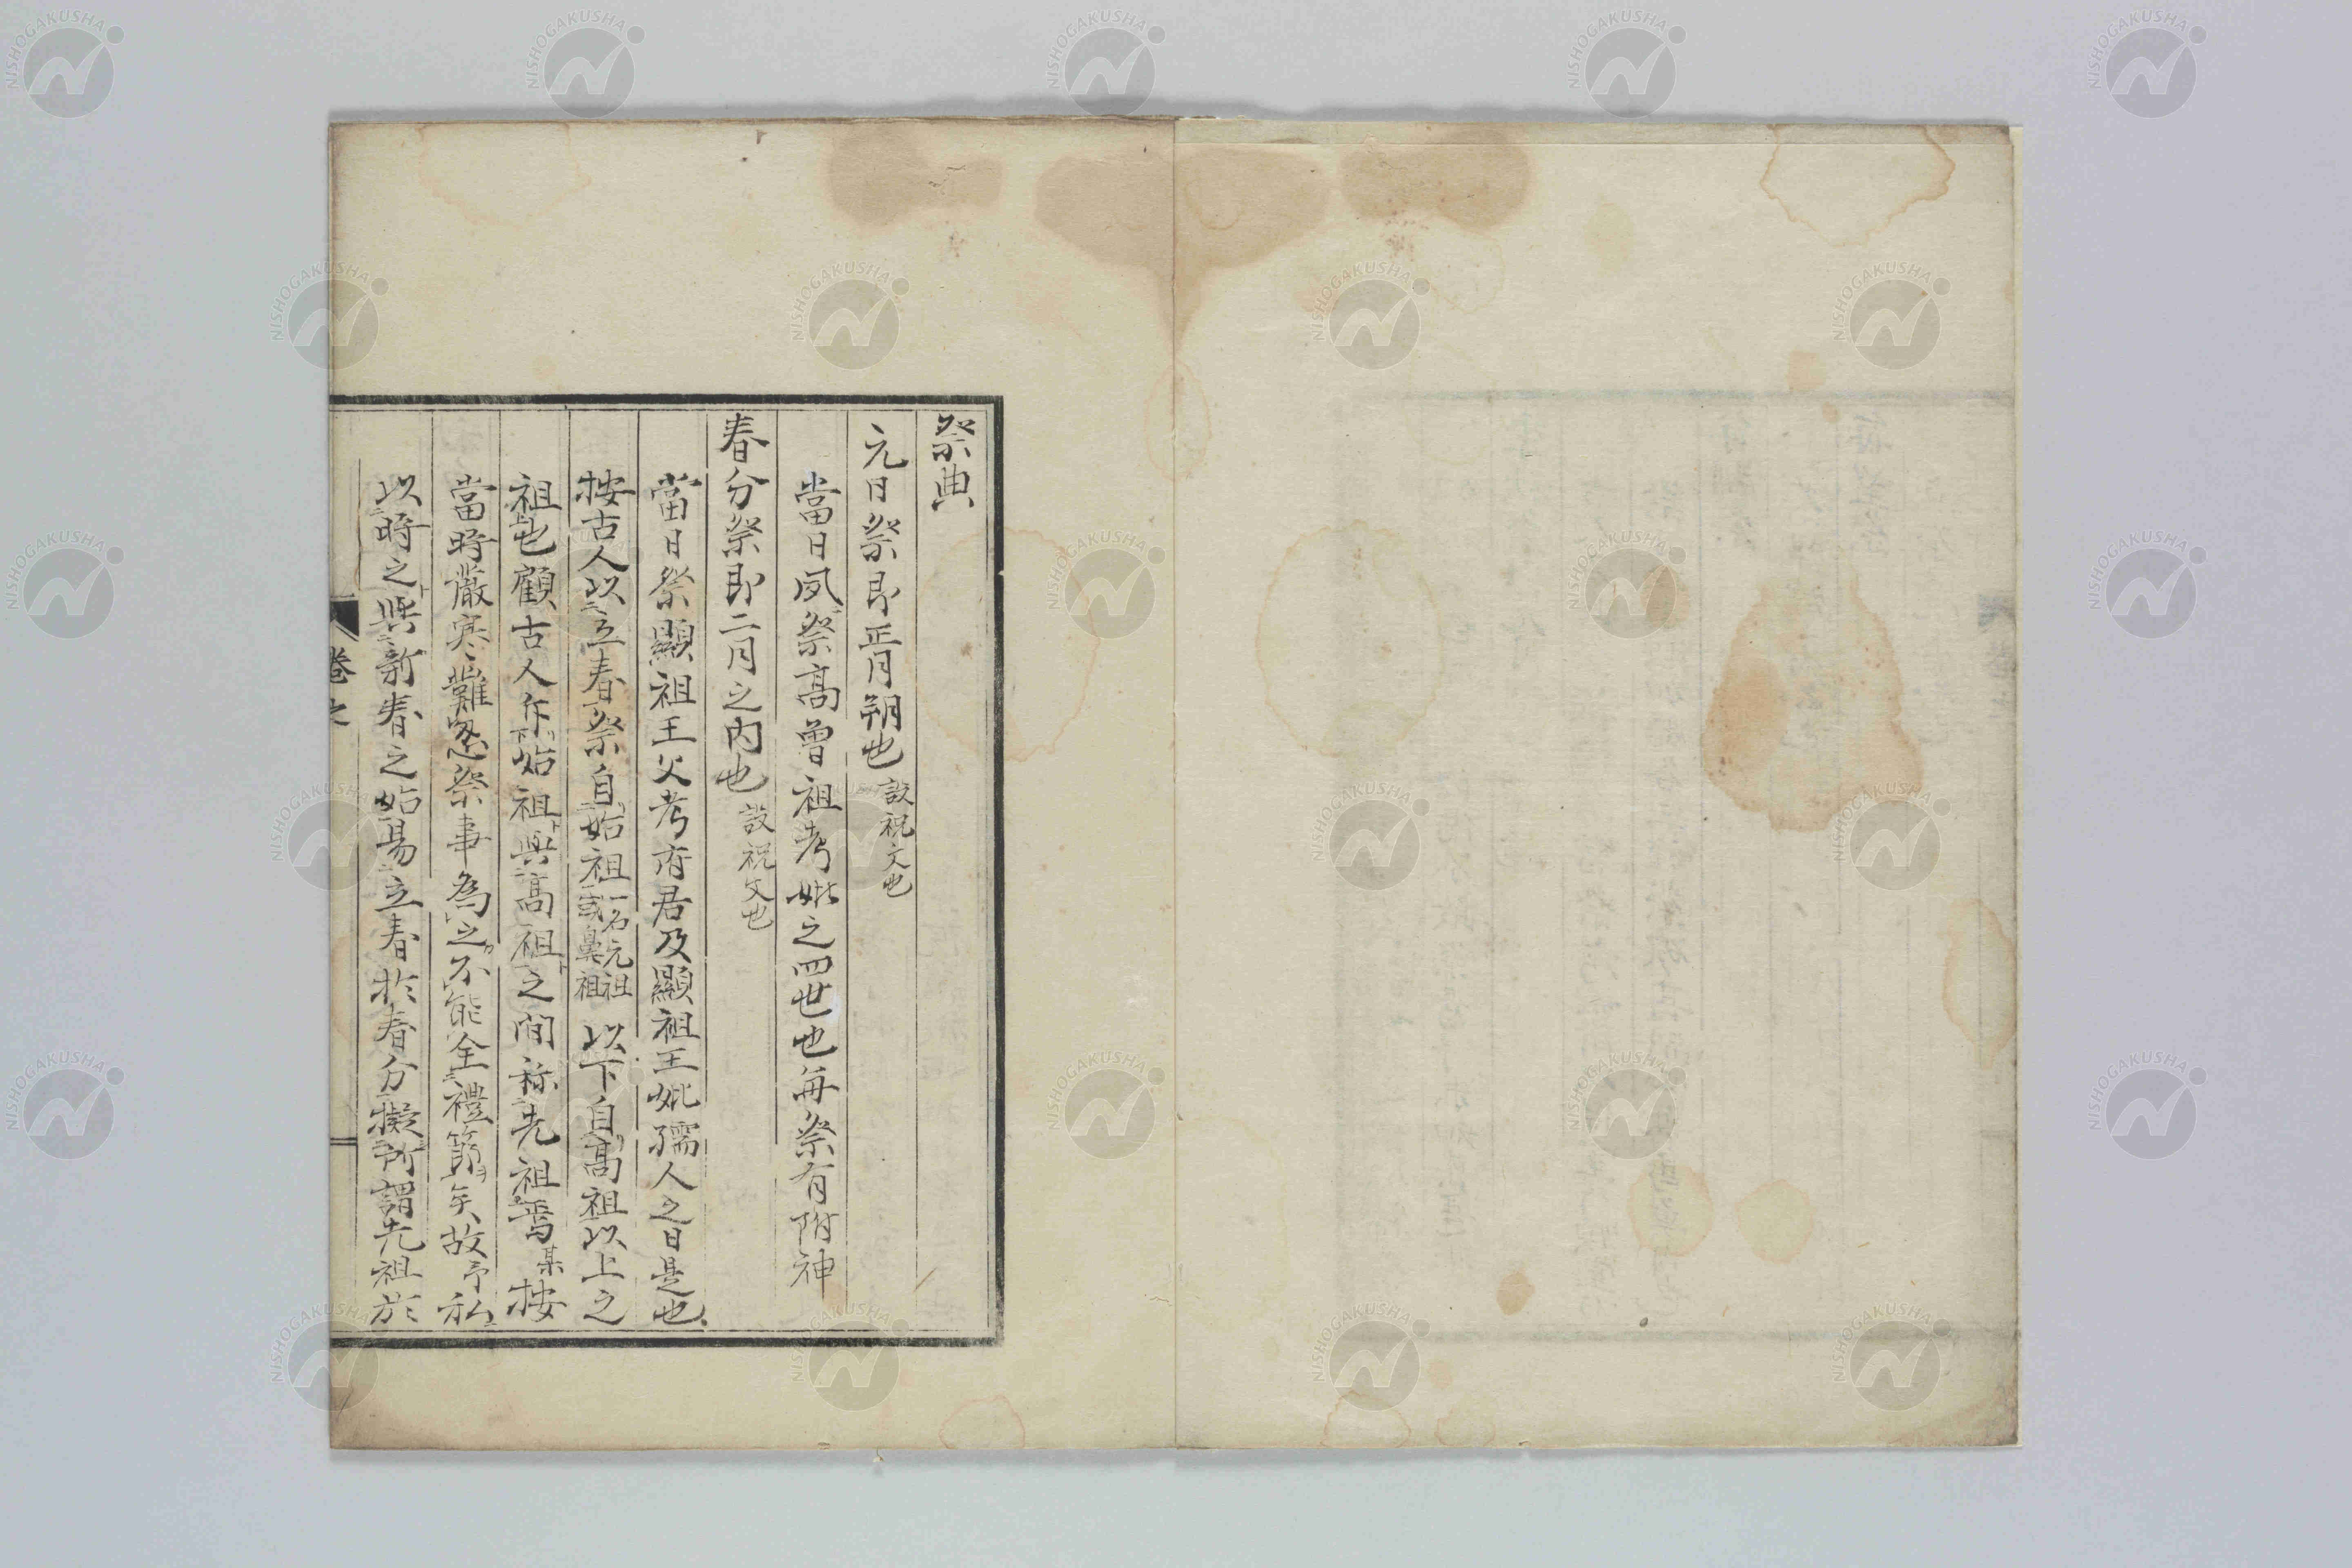 祭典
元日祭即正月朔也 設祝文也
當日夙祭高曾祖考妣之四世也每祭有附神
春分祭即二月之内也 設祝文也
當日祭顯祖王父考府君及顯祖王妣孺人之日是也
按古人以立春祭自始祖一名元祖或鼻祖以下自高祖以上之
祖也顧古人乍始祖與高祖之間称先祖焉某按
當時嚴寒難忍祭事為之不能全禮節矣故予私
以時之與新春之始易立春於春分擬所謂先祖於
卷之
NISHOGAKUSHA